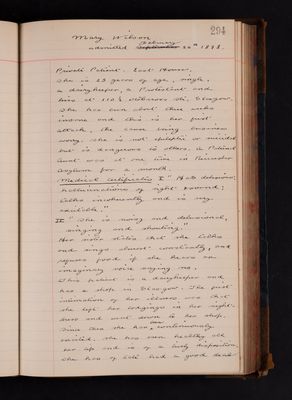 294
Mary Wilson
admitted February 20th 1898.
Private Patient. East House.
She is 23 years of age, single,
a dairykeeper, a Protestant and
lives at 110 St, Glasgow.
She has been about three weeks
insane and this is her first
attack, the cause being business
worry. She is not epileptic or suicidal
but is dangerous to others. A Paternal
Aunt was at one time in
Asylum for a month.
Medical Certificates I. "Has delusions,
hallucinations of sight & sound;
talks incoherently and is very
excitable."
II. "She is noisy and delusional,
singing and shouting."
Her sister states that she talks
and sings almost constantly, and
refuses food if she hears an
imaginary voice urging her.
This patient is a dairykeeper and
has a shop in Glasgow. The first
intimation of her illness was that
she left her lodgings in her night-
dress and went down to her shop.
Since then she has been continuously
excited. She has been healthy all
her life and is of a lively disposition
She has of late had a good deal